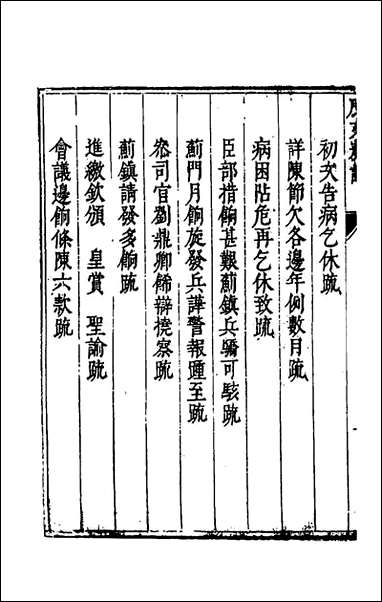 初次告病乞休疏
詳陳節欠各邊年例數月疏
病困阽危再乞休致疏
臣部措餉甚艱薊鎮兵驕可駭疏
薊門月餉旋發兵譁警報踵至疏
叅司官劉鼎卿餙辯撓察疏
薊鎮請發多餉疏
進繳欽頒 皇賞 聖諭疏
會議邊餉條陳六款疏